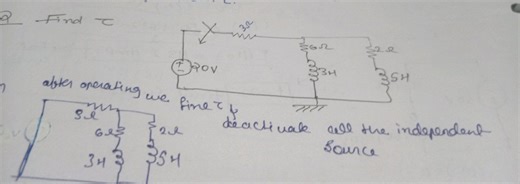 Q Find τ
3Ω
6Ω
2Ω
20V
3H
5H
after operating we find τ
deactivate all the independent
source
3Ω
6Ω
2Ω
3H
5H